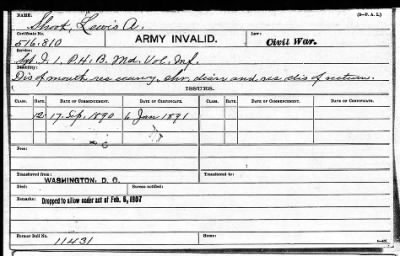 NAME:
Short, Lewis A.
(3—P. A. L.)
Certificate No.
516.810
ARMY INVALID.
Law:
Civil War.
Service:
Sgt. I. 1. P. H. B. Md. Vol. Inf.
Disability:
Dis of mouth res scurvy, chr. diar and res dis of rectum.
ISSUES.
CLASS. DATE. DATE OF COMMENCEMENT. DATE OF CERTIFICATE. CLASS. DATE. DATE OF COMMENCEMENT. DATE OF CERTIFICATE.
12 17 Sep. 1890 6 Jan 1891
From:
Transferred from: Transferred to:
WASHINGTON, D. C.
Died: Bureau notified:
Remarks: Dropped to allow under act of Feb. 6, 1907
Former Roll No.
11431